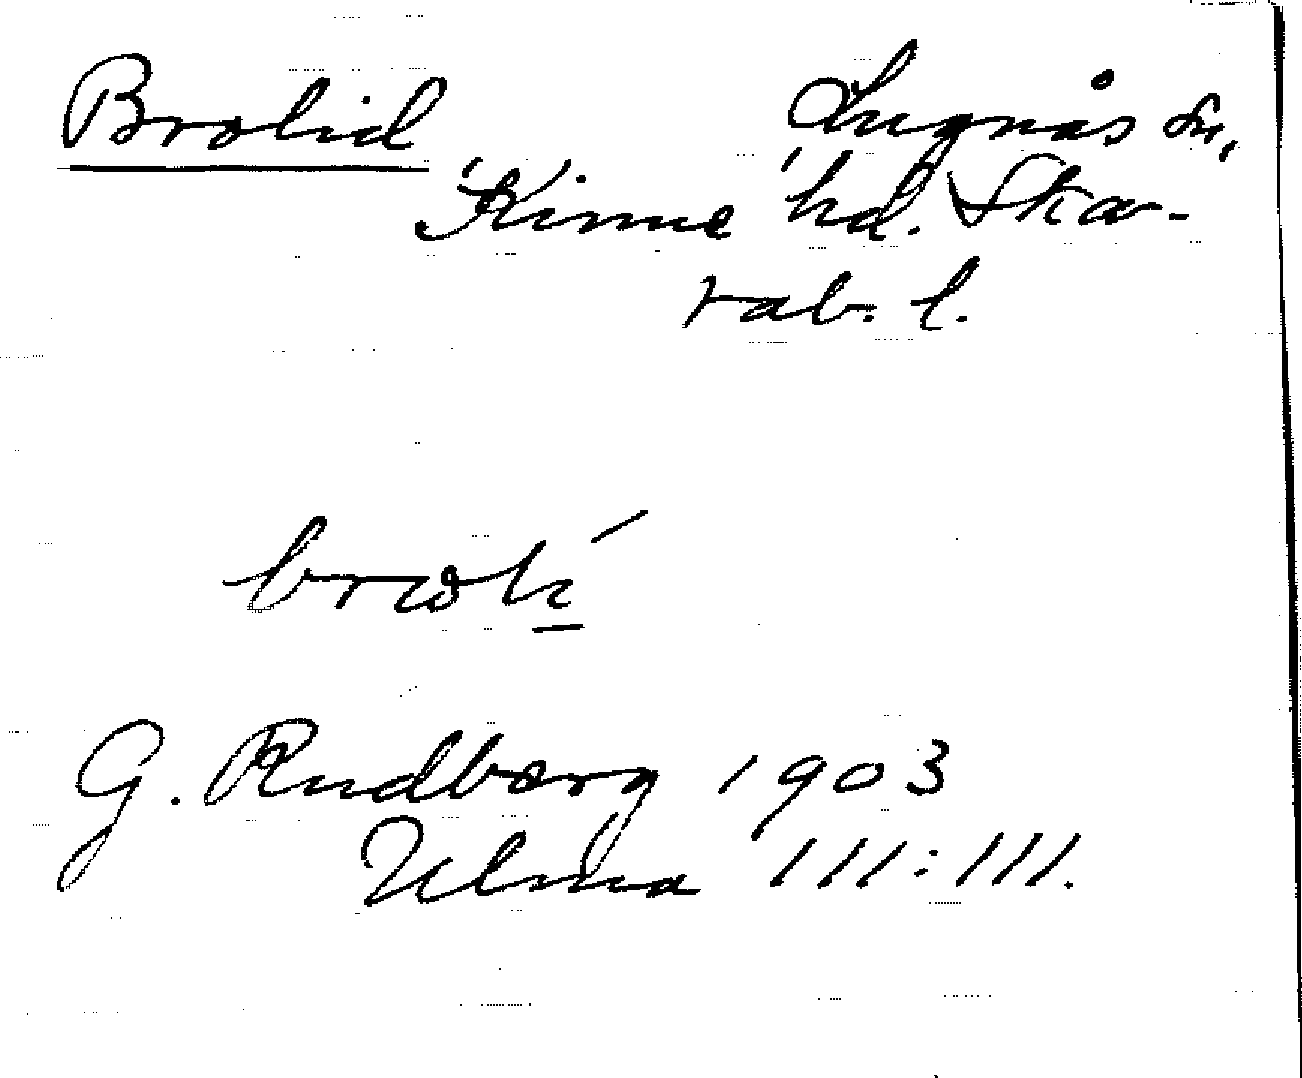 Brolid Lugnås sn,
Kinne hd. Ska-
rab. l.
G. Rudberg 1903
Ulma 111:111.